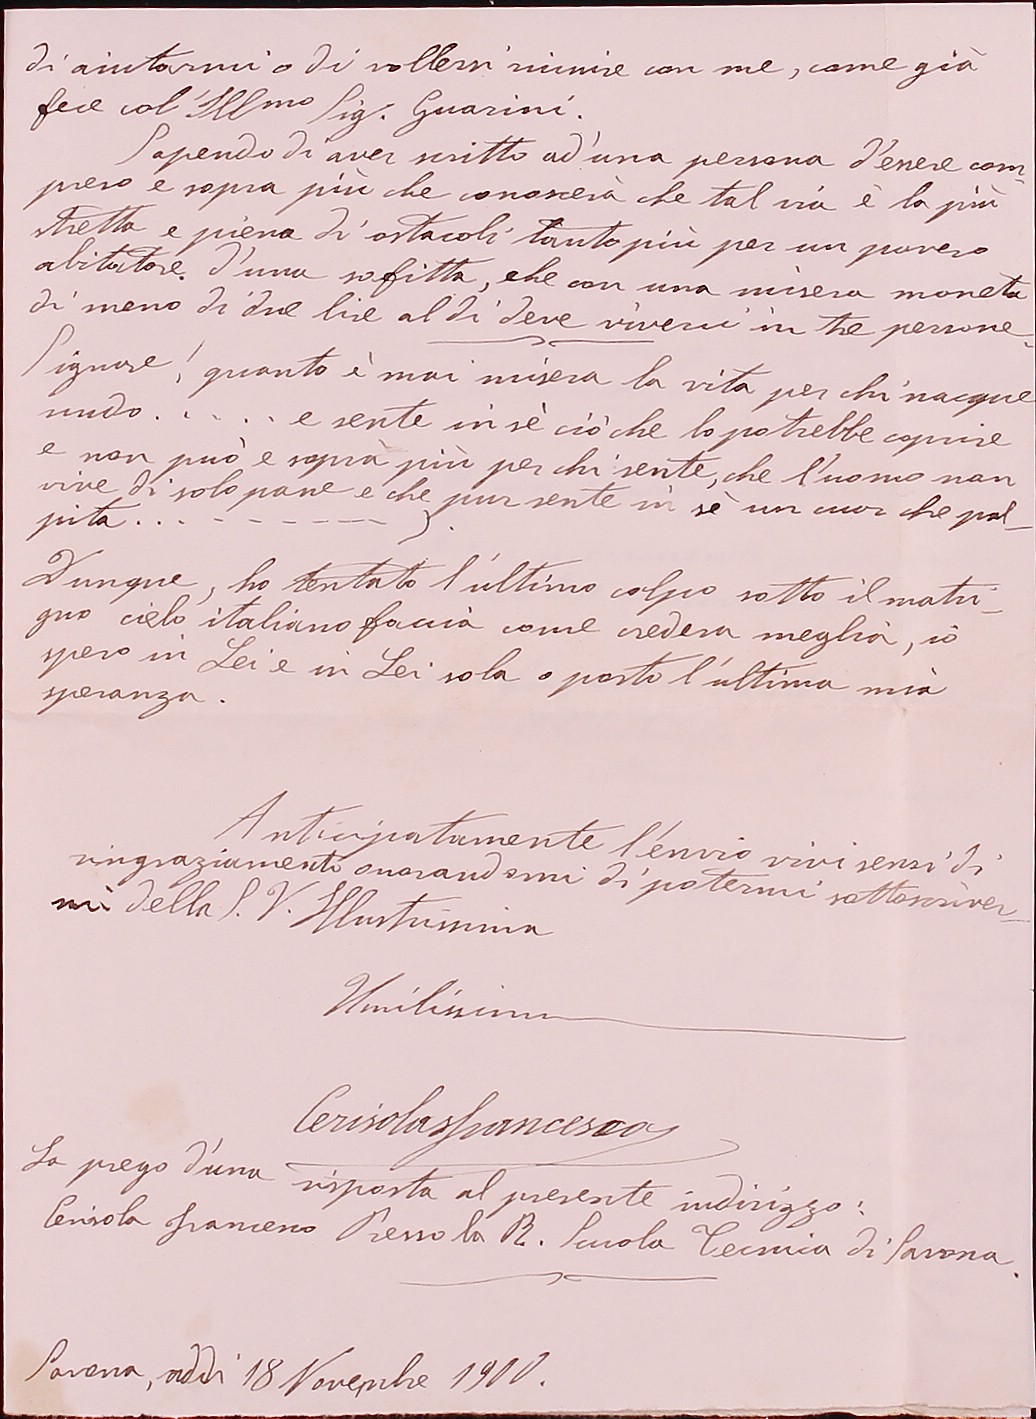 di aiutarmi o di vollersi riunire con me, come già
fece col' Illmo Sig. Guarini.
Sapendo di aver scritto ad'una persona d'essere com-
preso e sopra più che conoscerà che tal via è la più
stretta e piena di ostacoli tanto più per un povero
abitatore d'una sofitta, che con una misera moneta
di meno di due lire al dì deve viverci in tre persone.
Signore! quanto è mai misera la vita per chi nacque
nudo..... e sente in sè ciò che lo potrebbe coprire
e non può e soprà più per chi sente, che l'uomo non
vive di solo pane e che pur sente in sè un cuor che pal-
pita... - - - - - - -
Dunque, ho tentato l'ultimo colpo sotto il matri-
gno cielo italiano faccià come crederà meglià, iò
spero in Lei e in Lei sola o posto l'ultima mià
speranza.
Anticipatamente l'envio vivi sensi di
ringraziamenti onorandomi di potermi sottoscriver-
mi della S. V. Illustrissima
Umilissimo
Cerisola Francesco
La prego d'una risposta al presente indirizzo:
Cerisola Francesco Presso la R. Scuola Tecnica di Savona.
Savona, addì 18 Novembre 1900.